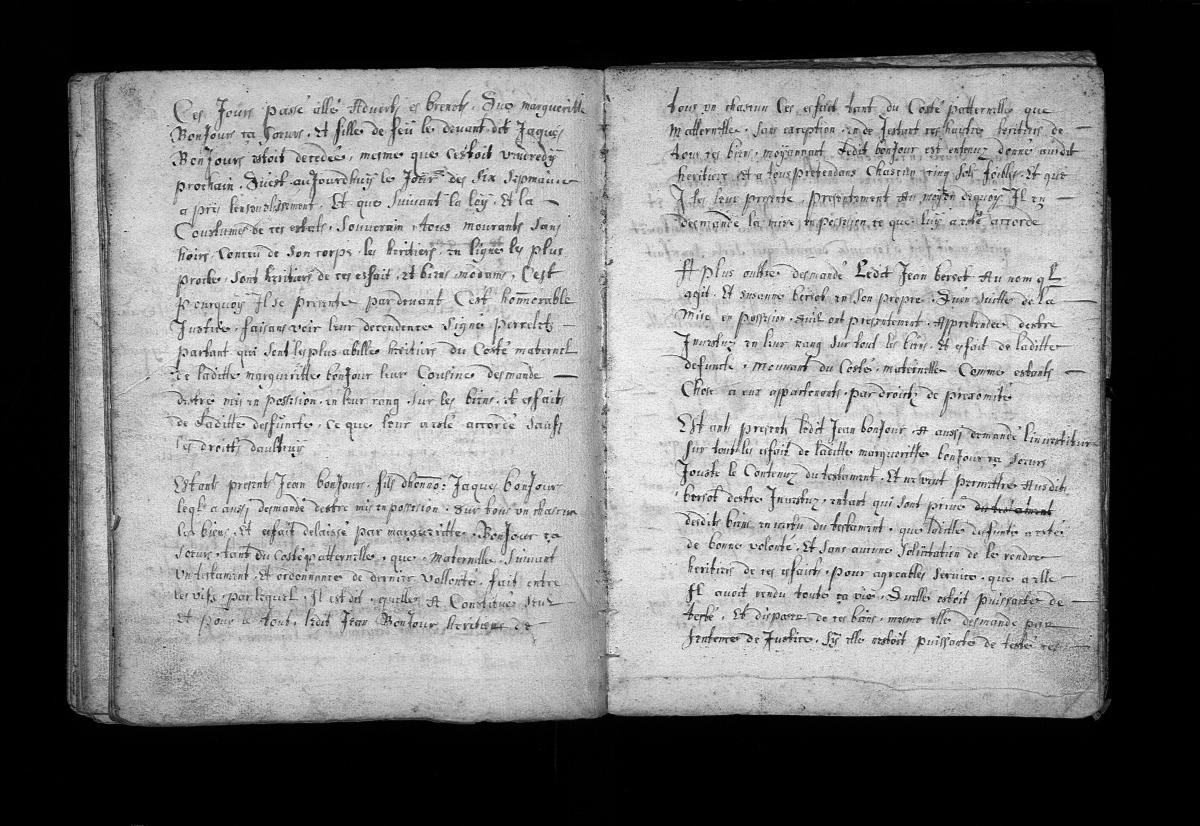 Ces Jours passé allé Advertÿ es brenets. Que margueritte
BonJours sa soeurs, Et fille de feü le devant dit Jaques
BonJours estoit decedée, mesme que c'estoit vendredÿ
prochain. Quest auJourdhuÿ le Jour des Six Sepmaine
apres l'ensevelissement. Et que suivant la loÿ, et la
Coustumes de ces estats, Souverain, tous mourants sans
hoirs, Conceu de Son corps, les heritiers, en ligne les plus
proche, sont heritiers de ces esfait, et biens morans, C'est
pourquoy Il se presente pardevant C'est honnorable
Justice, faisans voir leur decendence signe perrelet
partant qui sont les plus abille heritiers du Costé maternel
de laditte marguerite bonjour leur Cousine desmande
destre mis en position, en leur rang, sur les biens, et esfaits
de laditte desfuncte, Ce que leur a esté accordé Sauff
les droitt daultruÿ
Estants presents Jean bonJour, fils d'honno: Jaques bonJour
leql a aussi desmandé destre mis en position, Sur tous un chascun
les biens, Et esfait delaissé par margueritte, BonJour sa
soeur, tant du costé patternelle, que, maternelle, Suivant
un testament, Et ordonnance de dernier vollonté, fait entre
les vifs, par lequel, Il est dit, quelle A Constitué seul
Et pour le tout, ledit Jean BonJour heritiers de
tous un chascun Ces esfaict tant du Costé patternelle que
Matternelle, sans exception, en de Jestant ces haultre heritiers de
tous ces biens, moÿennant Ledit bonjour est entenuz donné ausdit
heritiers et a tous pretendans Chascun cinq solz foibles Et que
Il les leur presente, presentement Au moÿen dequoÿ Il en
desmande la mise en position, ce que luÿ a esté accordé
A plus oultre desmandé Ledit Jean bersot Au nom ql
agit, Et susanne bersot en son propre, Quen suitte de la
Mise en position, quil ont presentement, Apprehendee destre
Investuz en leur rang sur tout les biens, Et esfait de laditte
defuncte, mouvant du Costé, maternelle Comme estants
Chose a eux appartenants, par droitz de proximité
Estants presents ledit Jean bonjour, A aussi demandé linvestiture
Sur tout les esfait de laditte margueritte bonJour sa soeurs
Jouxte le Contenuz du testament, Et ne veut permettre Ausdit
bersot destre Investuz, entant qui sont privé du testament
desdits biens en vertu du testament, que laditte desfunte a esté
de bonne volonté, Et sans aucune Solicitation de le rendre
heritiers de ces esfaicts, pour agreables service, que a elle
Il avoit rendu toute sa vie, Quelle estoit puissante de
testé, Et disposer de ces biens, mesme elle desmande par
Sentence de Justice, Sÿ elle nestoit puissante de testé ces